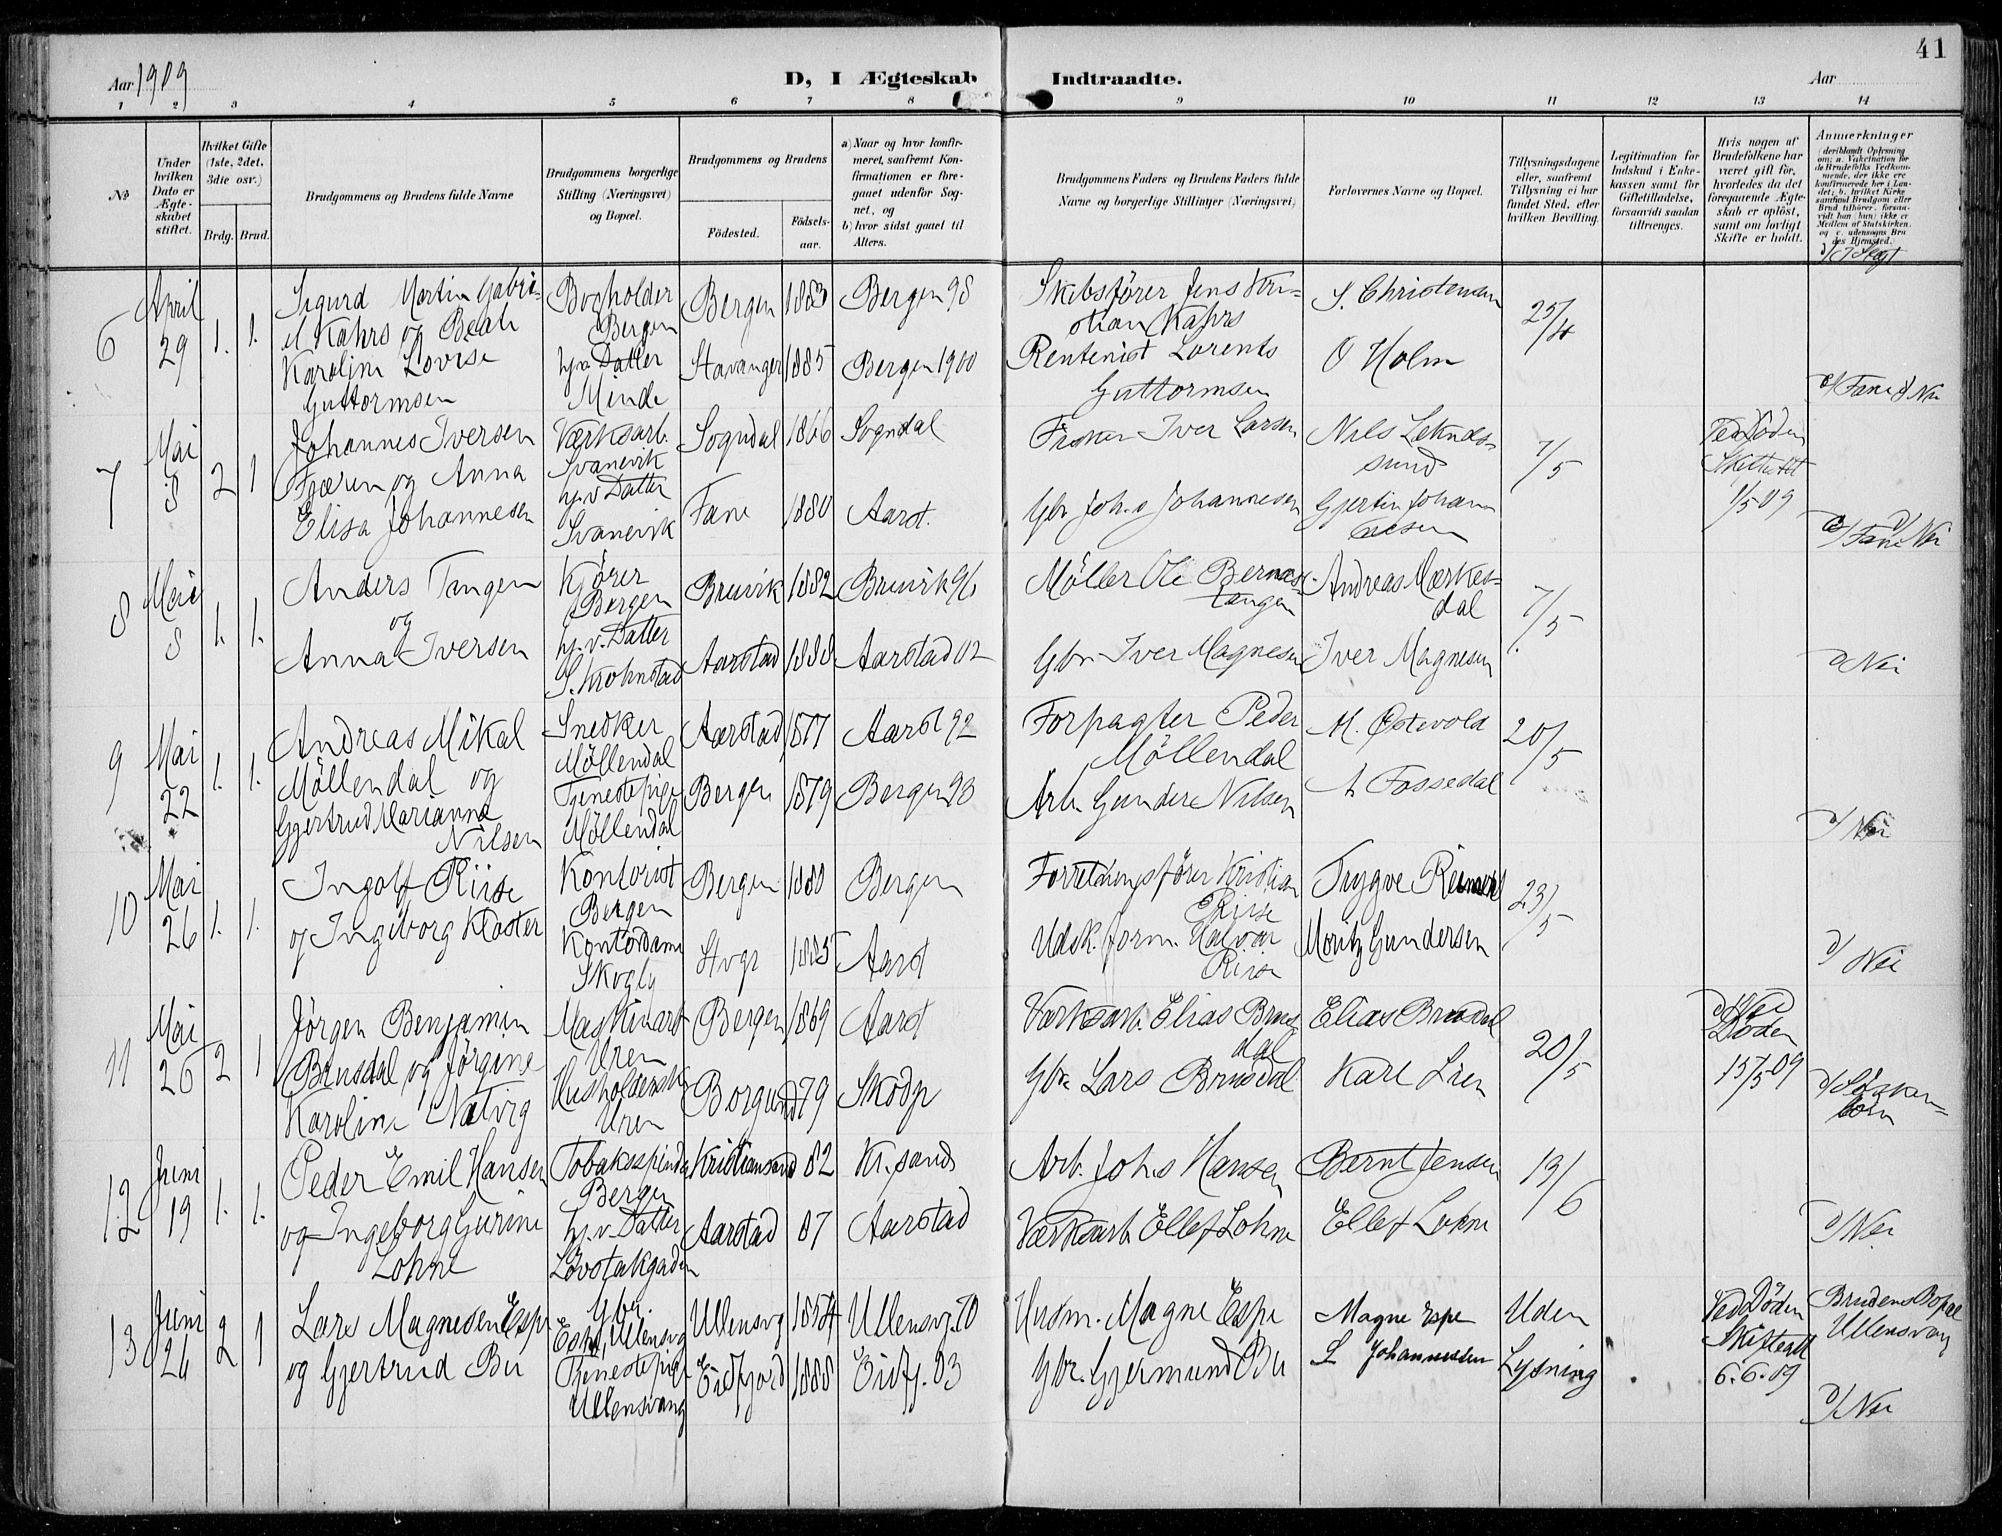 41
Aar 1909
D, I Ægteskab Indtraadte.
Aar
1 2 3 4 5 6 7 8 9 10 11 12 13 14
No
Under hvilken Dato er Ægteskabet stiftet.
Hvilket Gifte (1ste, 2det, 3die osv.)
Brdg. Brud.
Brudgommens og Brudens fulde Navne
Brudgommens borgerlige Stilling (Næringsvei) og Bopæl.
Brudgommens og Brudens
Födested. Födselsaar.
a) Naar og hvor konfirmeret, saafremt Konfirmationen er foregaaet udenfor Sognet, og
b) hvor sidst gaaet til Alters.
Brudgommens Faders og Brudens Faders fulde Navne og borgerlige Stillinger (Næringsvei)
Forlovernes Navne og Bopæl.
Tillysningsdagene eller, saafremt Tillysning ei har fundet Sted, efter hvilken Bevilling.
Legitimation for Indskud i Enkekassen samt for Giftetilladelse, forsaavidt saadan tiltrænges.
Hvis nogen af Brudefolkene har været gift før, hvorledes da det foregaaende Ægteskab er opløst, samt om lovligt Skifte er holdt.
Anmærkninger
6 April 29 1. 1.
Sigurd Martin Gabri-
el Kahrs og Beate
Karoline Lovise
Guttormsen
Bogholder
Bergen
hjv. Datter
Minde
Bergen 1883 Bergen 98
Stavanger 1885 Bergen 1900
Skibsfører Jens Kri-
stian Kahrs
Rentenist Lorents
Guttormsen
S. Christensen
O Holm
25/4
7 Mai 8 2 1
Johannes Iversen
Fjæren og Anna
Elisa Johannesen
Værksarb.
Svanevik
hj.v Datter
Svanevik
Sogndal 1866 Sogndal
Fane 1880 Aarst.
Fisker Iver Larsen
Gbr Johs Johannesen
Nils
sund
Gjertin Johann
esen
7/5
Ved Døden
1/5 09
8 Mai 8 1. 1.
Anders Tangen
og
Anna Iversen
Kjører
Bergen
hj.v. Datter
S. Krohnstad
Brevik 1882 Brevik 96
Aarstad 1888 Aarstad 02
Møller Ole
Tangen
Gbr. Iver Magnesen
Andreas Mørkes-
dal
Iver Magnesen
7/5
Nei
9 Mai 22 1. 1.
Andreas Mikal
Møllendal og
Gjertrud Marianne
Nilsen
Snedker
Møllendal
Tjenestepige
Møllendal
Aarstad 1877 Aarst 92
Bergen 1879 Bergen 93
Forpagter Peder
Møllendal
Arb. Gunder Nilsen
M. Østevold
A Fossedal
20/5
Nei
10 Mai 26 1. 1.
Ingolf Riise
og Ingeborg Kloster
Kontorist
Bergen
Kontordame
Skogly
Bergen 1880 Bergen
Stvgr 1885 Aarst
Forretningsfører Kristian
Riise
Udsk. form. Halvor
Riise
Trygve
Moritz Gundersen
23/5
Nei
11 Mai 26 2 1
Jørgen Benjamin
Brusdal og Jørgine
Karoline Natvig
Maskinarb
Uren
Husholderske
Uren
Bergen 1869 Aarst
Borgund 79 Skodje
Værksarb. Elias Brus
dal
Gbr. Lars Brusdal
Elias Brusdal
Karl Lien
20/5
Døden
15/5 09
Søsken-
børn
12 Juni 19 1. 1.
Peder Emil Hansen
og Ingeborg Gurine
Lohne
Tobaksspinder
Bergen
hj.v. Datter
Løvstakgaden
Kristiansand 82 Kr.sand
Aarstad 87 Aarstad
Arb. Johs Hansen
Værksarb. Ellef Lohne
Bernt Jensen
Ellef Lohne
19/6
Nei
13 Juni 24 2 1
Lars Magnesen Espe
og Gjertrud Bu
Gbr.
Espe, Ullensvg
Tjenestepige
Ullensvang
Ullensvg 1854 Ullensvg. 70
Eidfjord 1888 Eidfj. 03
Husm. Magne Espe
Gbr. Gjermund Bu
Magne Espe
L Johannessen
Uden
Lysning
Ved Døden
Skifteatt
6.6.09
Brudens Bopæl
Ullensvang
Nei